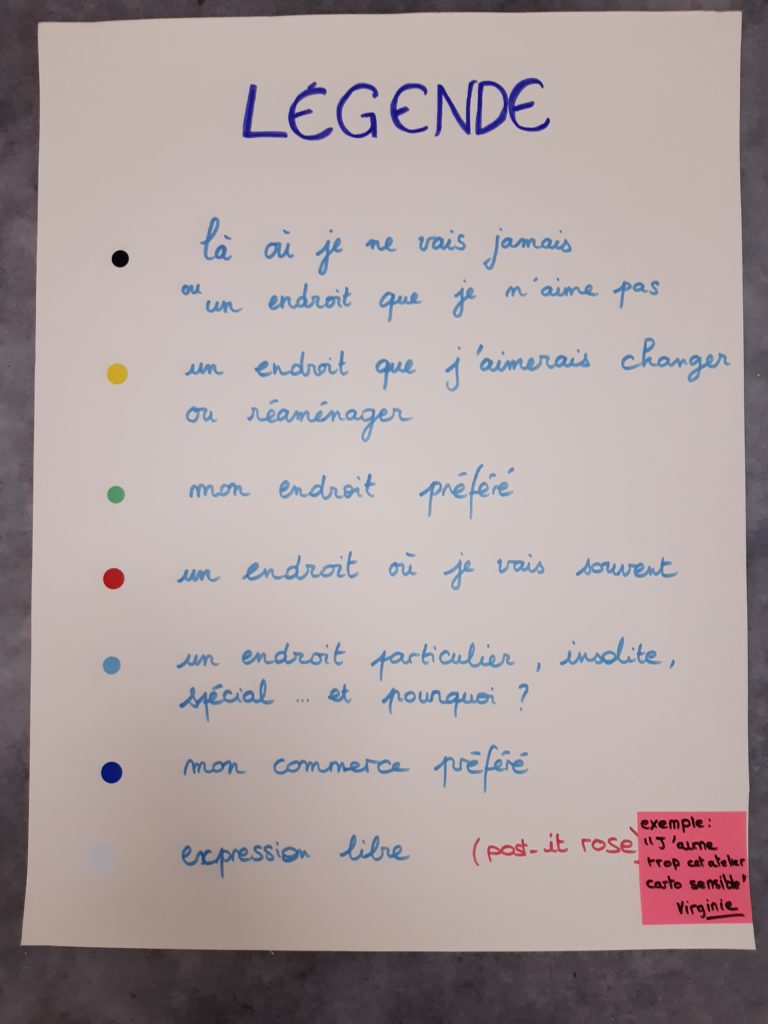 LÉGENDE
là où je ne vais jamais
ou un endroit que je n'aime pas
un endroit que j'aimerais changer
ou réaménager
mon endroit préféré
un endroit où je vais souvent
un endroit particulier, insolite,
spécial ... et pourquoi ?
mon commerce préféré
expression libre (post-it rose)
exemple :
"J'aime
trop cet atelier
carto sensible"
Virginie